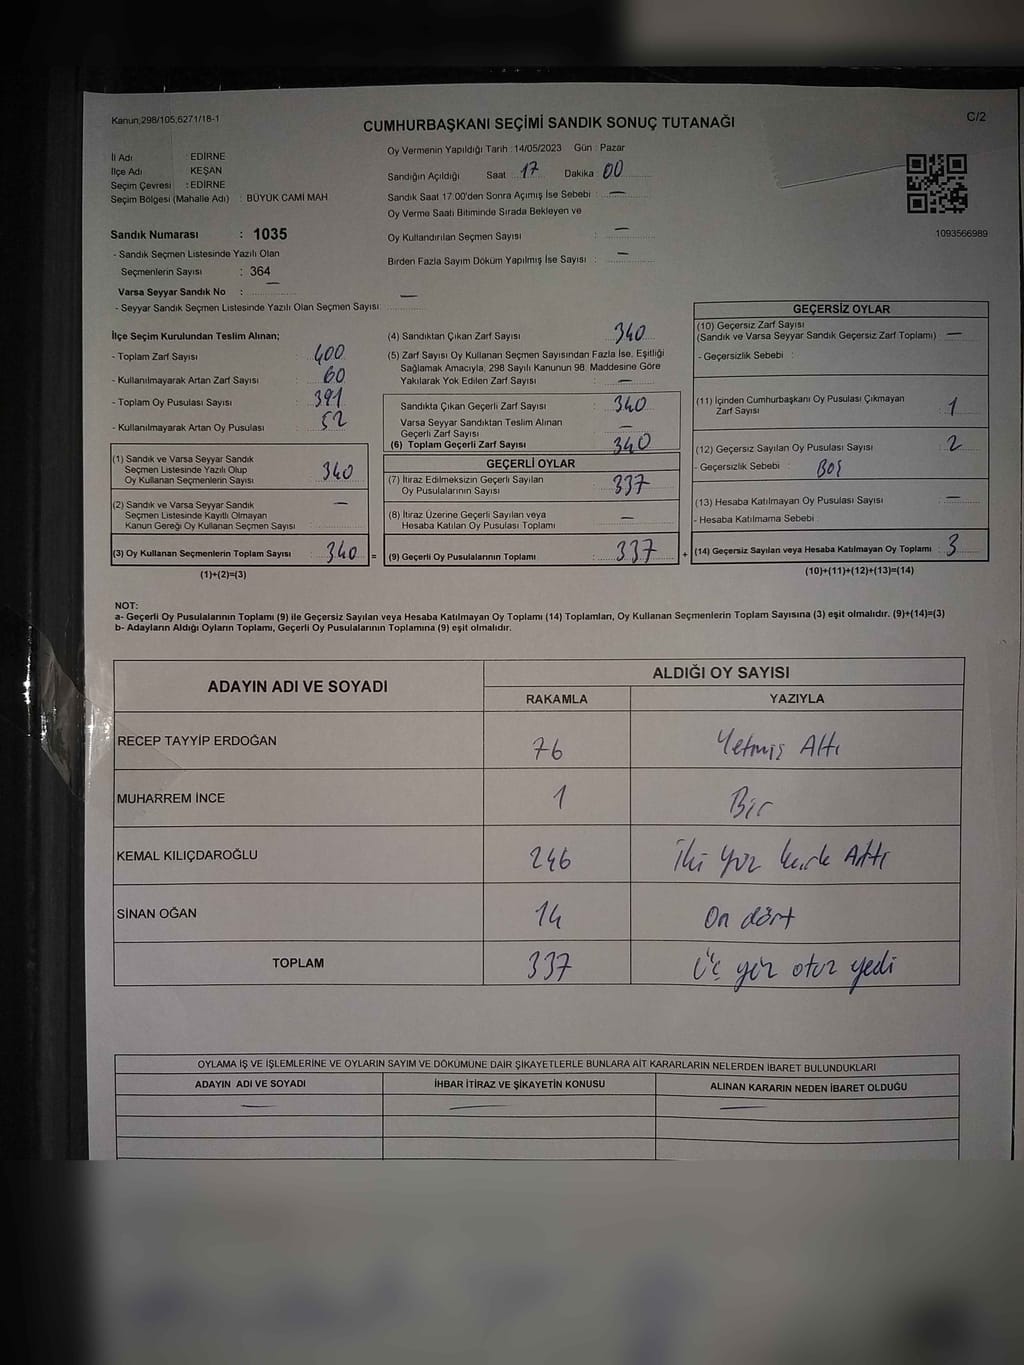 Kanun;298/105,6271/18-1
CUMHURBAŞKANI SEÇİMİ SANDIK SONUÇ TUTANAĞI
C/2
İl Adı : EDİRNE
İlçe Adı : KEŞAN
Seçim Çevresi : EDİRNE
Seçim Bölgesi (Mahalle Adı) : BÜYÜK CAMİ MAH
Oy Vermenin Yapıldığı Tarih : 14/05/2023 Gün : Pazar
Sandığın Açıldığı Saat 17 Dakika : 00
Sandık Saat 17:00'den Sonra Açımış İse Sebebi : —
Oy Verme Saati Bitiminde Sırada Bekleyen ve
Oy Kullandırılan Seçmen Sayısı : —
Birden Fazla Sayım Döküm Yapılmış İse Sayısı : —
1093566989
Sandık Numarası : 1035
- Sandık Seçmen Listesinde Yazılı Olan
Seçmenlerin Sayısı : 364
Varsa Seyyar Sandık No : —
- Seyyar Sandık Seçmen Listesinde Yazılı Olan Seçmen Sayısı: —
İlçe Seçim Kurulundan Teslim Alınan;
- Toplam Zarf Sayısı : 400
- Kullanılmayarak Artan Zarf Sayısı : 60
- Toplam Oy Pusulası Sayısı : 391
- Kullanılmayarak Artan Oy Pusulası : 52
(1) Sandık ve Varsa Seyyar Sandık
Seçmen Listesinde Yazılı Olup
Oy Kullanan Seçmenlerin Sayısı : 340
(2) Sandık ve Varsa Seyyar Sandık
Seçmen Listesinde Kayıtlı Olmayan
Kanun Gereği Oy Kullanan Seçmen Sayısı : —
(3) Oy Kullanan Seçmenlerin Toplam Sayısı : 340 =
(1)+(2)=(3)
(4) Sandıktan Çıkan Zarf Sayısı : 340
(5) Zarf Sayısı Oy Kullanan Seçmen Sayısından Fazla İse, Eşitliği
Sağlamak Amacıyla, 298 Sayılı Kanunun 98. Maddesine Göre
Yakılarak Yok Edilen Zarf Sayısı : —
Sandıkta Çıkan Geçerli Zarf Sayısı : 340
Varsa Seyyar Sandıktan Teslim Alınan
Geçerli Zarf Sayısı : —
(6) Toplam Geçerli Zarf Sayısı : 340
GEÇERLİ OYLAR
(7) İtiraz Edilmeksizin Geçerli Sayılan
Oy Pusulalarının Sayısı : 337
(8) İtiraz Üzerine Geçerli Sayılan veya
Hesaba Katılan Oy Pusulası Toplamı : —
(9) Geçerli Oy Pusulalarının Toplamı : 337 +
GEÇERSİZ OYLAR
(10) Geçersiz Zarf Sayısı
(Sandık ve Varsa Seyyar Sandık Geçersiz Zarf Toplamı) : —
- Geçersizlik Sebebi :
(11) İçinden Cumhurbaşkanı Oy Pusulası Çıkmayan
Zarf Sayısı : 1
(12) Geçersiz Sayılan Oy Pusulası Sayısı : 2
- Geçersizlik Sebebi : BOŞ
(13) Hesaba Katılmayan Oy Pusulası Sayısı : —
- Hesaba Katılmama Sebebi :
(14) Geçersiz Sayılan veya Hesaba Katılmayan Oy Toplamı : 3
(10)+(11)+(12)+(13)=(14)
NOT:
a- Geçerli Oy Pusulalarının Toplamı (9) ile Geçersiz Sayılan veya Hesaba Katılmayan Oy Toplamı (14) Toplamları, Oy Kullanan Seçmenlerin Toplam Sayısına (3) eşit olmalıdır. (9)+(14)=(3)
b- Adayların Aldığı Oyların Toplamı, Geçerli Oy Pusulalarının Toplamına (9) eşit olmalıdır.
ADAYIN ADI VE SOYADI
ALDIĞI OY SAYISI
RAKAMLA YAZIYLA
RECEP TAYYİP ERDOĞAN 76 Yetmiş Altı
MUHARREM İNCE 1 Bir
KEMAL KILIÇDAROĞLU 246 İki yüz kırk Altı
SİNAN OĞAN 14 On dört
TOPLAM 337 Üç yüz otuz yedi
OYLAMA İŞ VE İŞLEMLERİNE VE OYLARIN SAYIM VE DÖKÜMÜNE DAİR ŞİKAYETLERLE BUNLARA AİT KARARLARIN NELERDEN İBARET BULUNDUKLARI
ADAYIN ADI VE SOYADI İHBAR İTİRAZ VE ŞİKAYETİN KONUSU ALINAN KARARIN NEDEN İBARET OLDUĞU
— — —